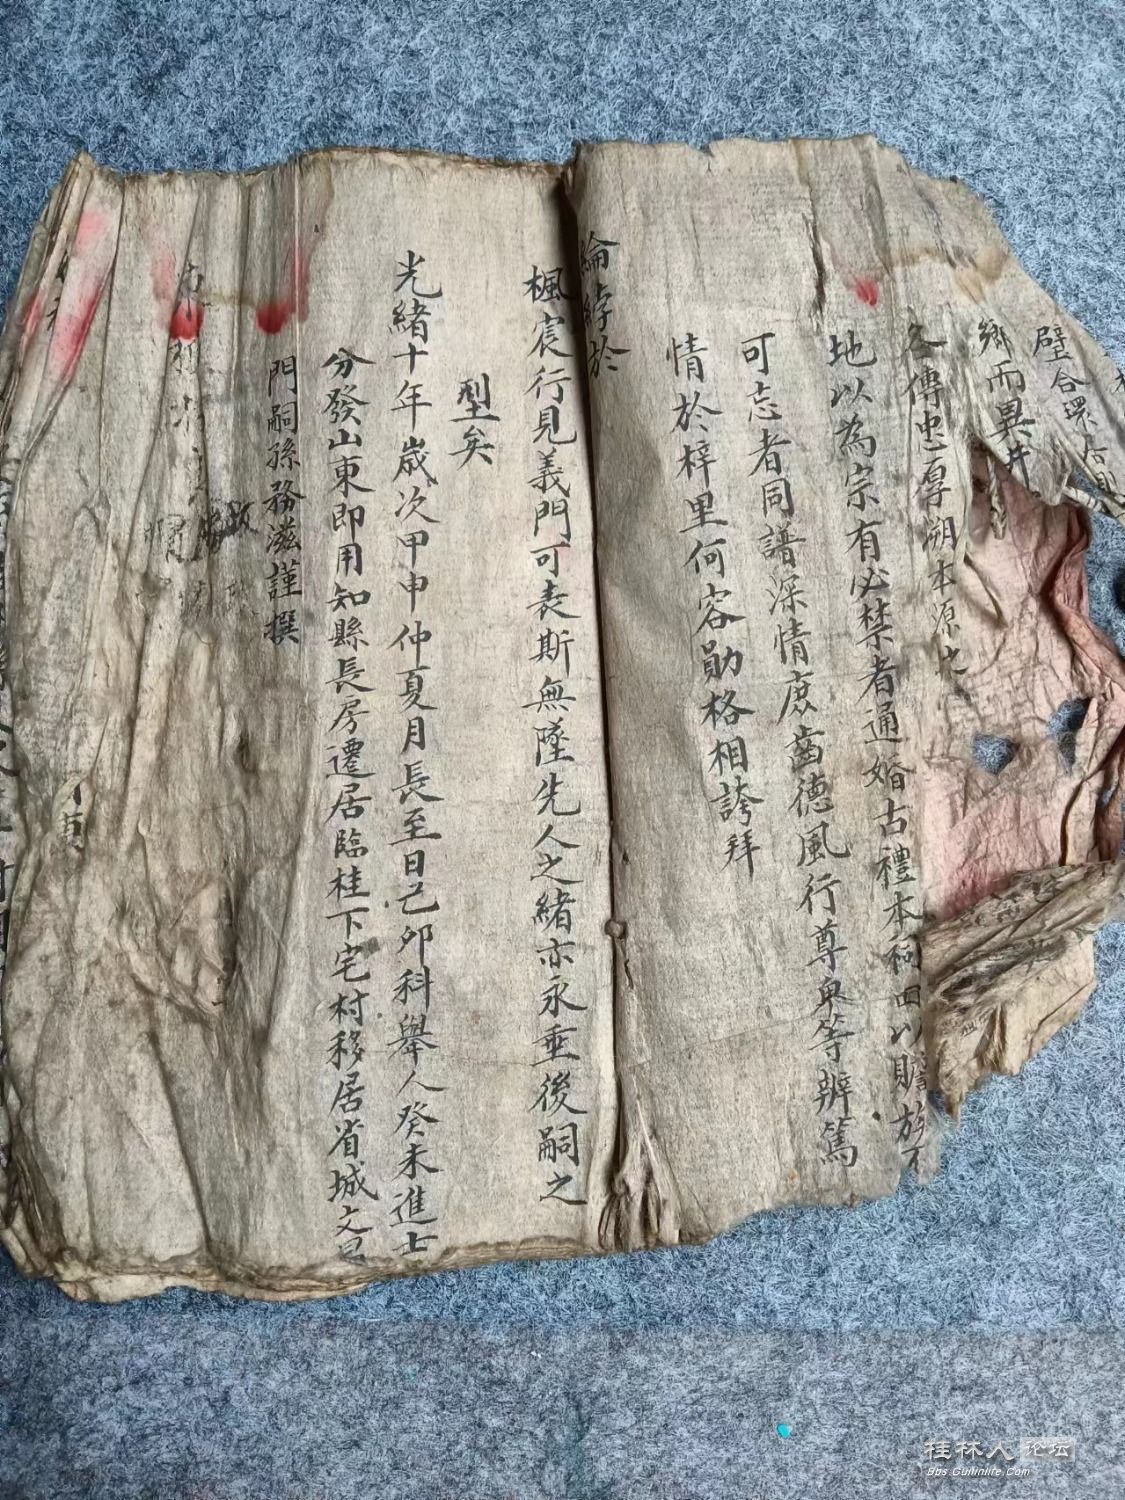 璧合環
鄉而異井
傳忠厚溯本源之
地以為宗有必禁者通婚古禮本祠田以贍族不
可忘者同譜深情庶齒德風行尊卑等辨篤
情於梓里何容勛格相誇拜
綸綍於
楓宸行見義門可表斯無墜先人之緒亦永垂後嗣之
型矣
光緒十年歲次甲申仲夏月長至日己卯科舉人癸未進士
分發山東即用知縣長房遷居臨桂下宅村移居省城文昌
門嗣孫務滋謹撰
桂林人论坛
Bbs.Guilinlife.Com